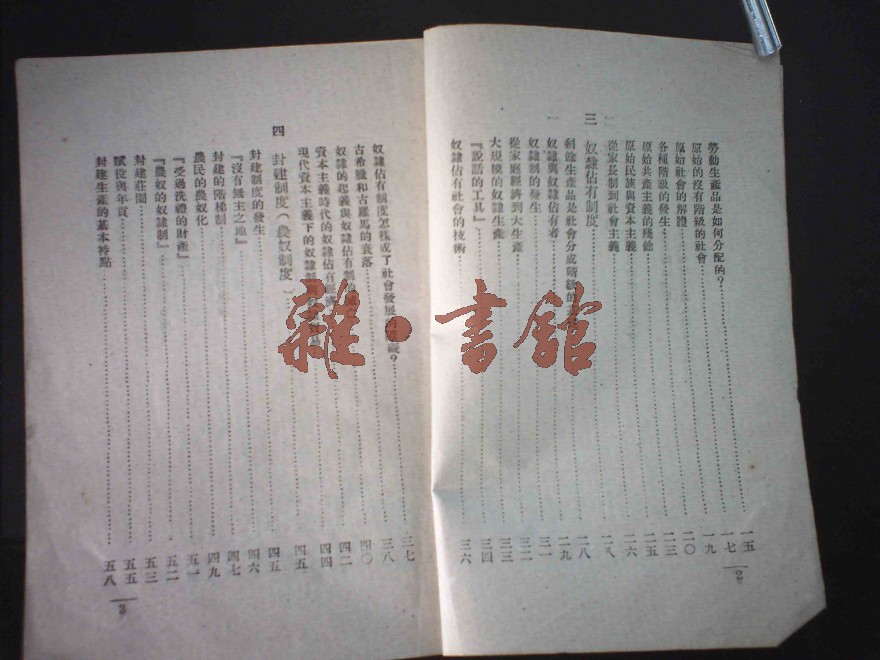 勞動生產品是如何分配的？……一五
原始的沒有階級的社會……一七
原始社會的解體……一九
各種階級的發生……二〇
原始共產主義的殘餘……二三
原始民族與資本主義……二五
從家長制到社會主義……二六
三 奴隸佔有制度……二八
剩餘生產品是社會分成階級的……二八
奴隸與奴隸佔有者……二九
奴隸制的發生……三一
從家庭經濟到大生產……三二
大規模的奴隸生產……三三
『說話的工具』……三四
奴隸佔有社會的技術……三六
2
奴隸佔有制度怎樣成了社會發展的障礙？……三七
古希臘和古羅馬的衰落……三八
奴隸的起義與奴隸佔有制……四〇
資本主義時代的奴隸佔有經濟……四二
現代資本主義下的奴隸制……四四
四 封建制度（農奴制度）……四五
封建制度的發生……四五
『沒有領主之地』……四六
封建的階梯制……四七
農民的農奴化……四九
『受過洗禮的財產』……五一
『農奴的奴隸制』……五二
封建莊園……五三
賦役與年貢……五五
封建生產的基本特點……五八
3
雜·書館